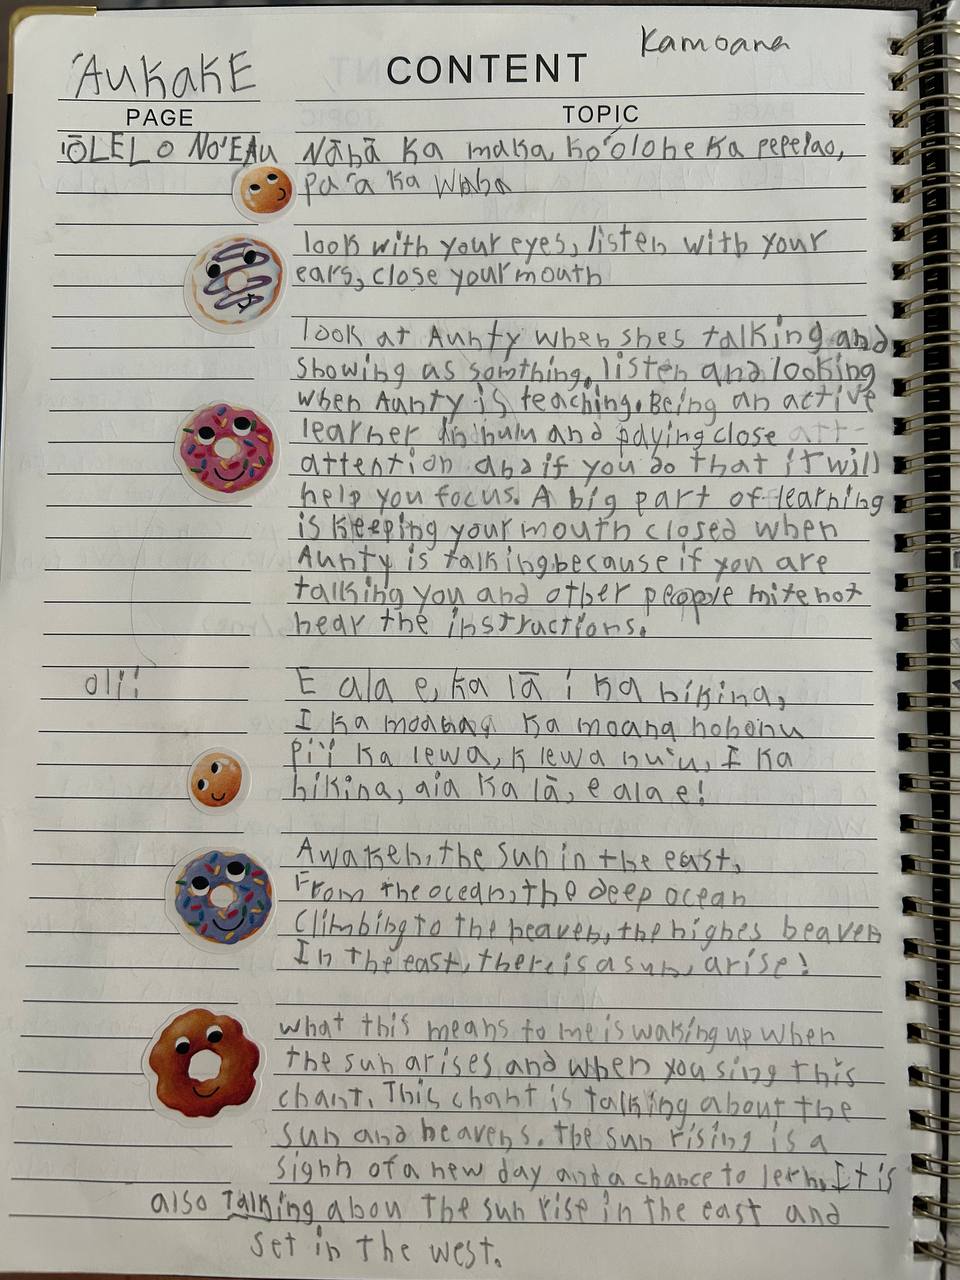 Kamoana
'AUKAKE CONTENT
PAGE TOPIC
'ŌLELO NO'EAU Nānā Ka maka, ho'olohe Ka pepeiao,
pa'a Ka Waha
look with your eyes, listen with your
ears, close your mouth
look at Aunty when shes talking and
showing as somthing, listen and looking
when Aunty is teaching. Being an active
learner in hulu and paying close att-
attention and if you do that it will
help you focus. A big part of learning
is keeping your mouth closed when
Aunty is talking because if you are
talking you and other people mite not
hear the instructions.
oli:
E ala e, Ka lā i Ka hikina,
I Ka moana Ka moana hohonu
Pi'i Ka lewa, K lewa nu'u, I Ka
hikina, aia Ka lā, e ala e!
Awaken, the sun in the east,
From the ocean, the deep ocean
Climbing to the heaven, the highes heaven
In the east, there is a sun, arise!
what this means to me is waking up when
the sun arises and when you sing this
chant. This chant is talking about the
sun and heavens. the sun rising is a
signh of a new day and a chance to lern. It is
also Talking abou the sun rise in the east and
set in the west.